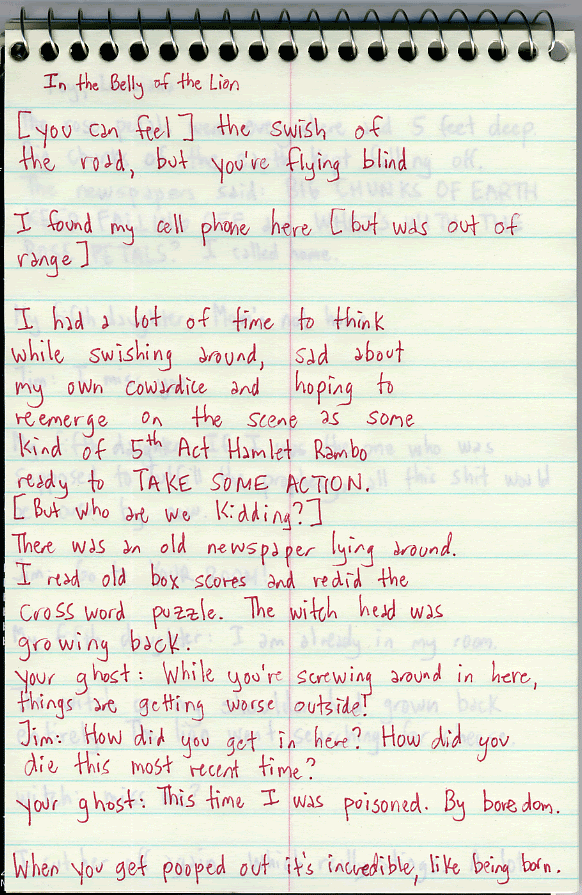 In the Belly of the Lion
[you can feel] the swish of
the road, but you're flying blind
I found my cell phone here [but was out of
range]
I had a lot of time to think
while swishing around, sad about
my own cowardice and hoping to
reemerge on the scene as some
kind of 5th Act Hamlet Rambo
ready to TAKE SOME ACTION.
[But who are we kidding?]
There was an old newspaper lying around.
I read old box scores and redid the
crossword puzzle. The witch head was
growing back.
your ghost: While you're screwing around in here,
things are getting worse outside!
Jim: How did you get in here? How did you
die this most recent time?
your ghost: This time I was poisoned. By boredom.
When you get pooped out it's incredible, like being born.